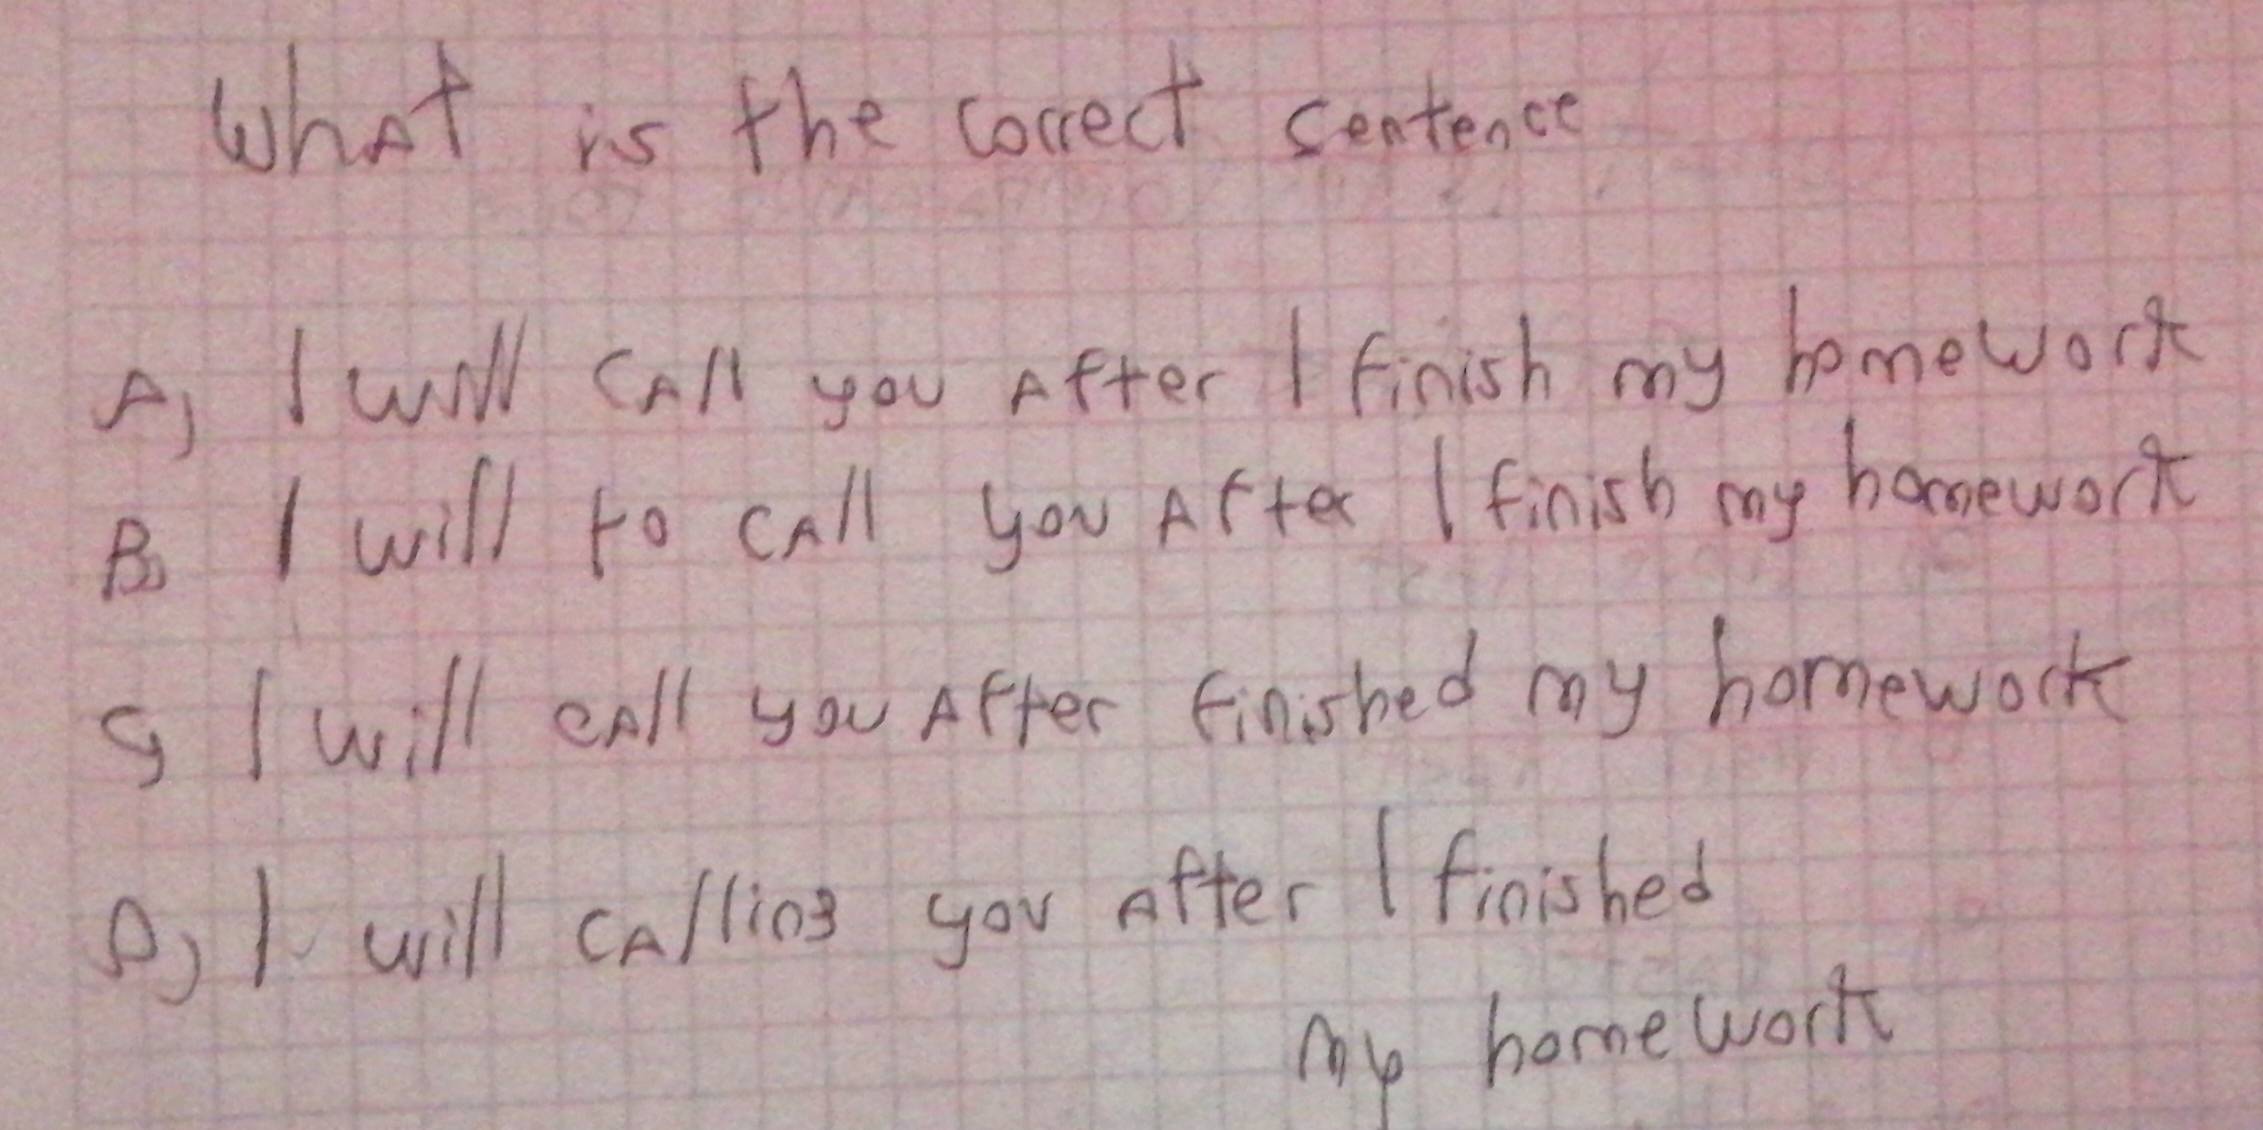 What is the correct sentence
A) I will call you after I finish my homework
B) I will to call you after I finish my homework
C) I will call you after finished my homework
D) I will calling you after I finished
my homework